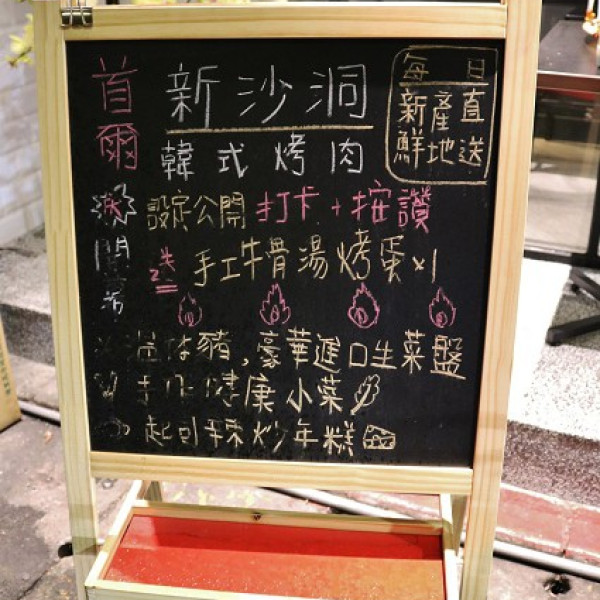 首爾
新沙洞
韓式烤肉
每日
新鮮
產地
直送
設定公開 打卡+按讚
送 手工牛骨湯烤蛋x1
溫体豬,豪華進口生菜盤
手作健康小菜
起司辣炒年糕